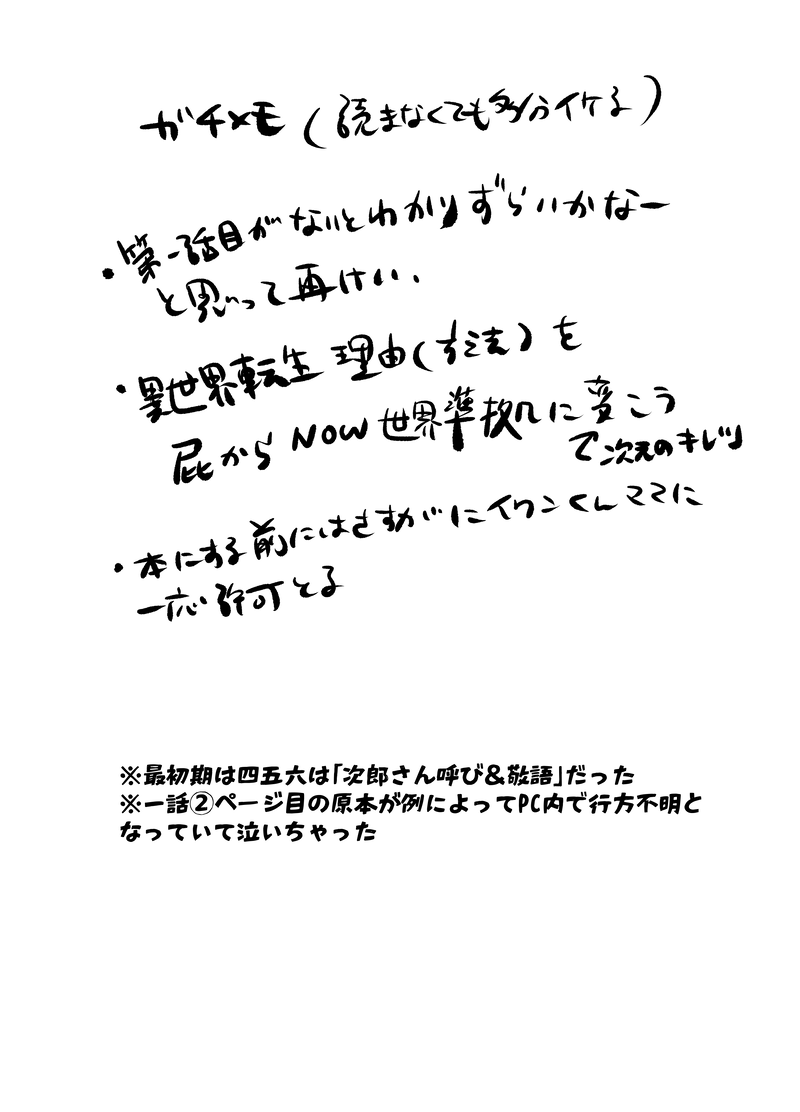 ガチメモ(読まなくても多分イケる)
・第一話目がないとわかりずらいかなー
と思って再けい.
・異世界転生 理由(方法)を
屁から NOW 世界準拠に変こう
で次元のキレツ
・本にする前にはさすがにイワンくんママに
一応許可とる
※最初期は四五六は「次郎さん呼び&敬語」だった
※一話②ページ目の原本が例によってPC内で行方不明と
なっていて泣いちゃった